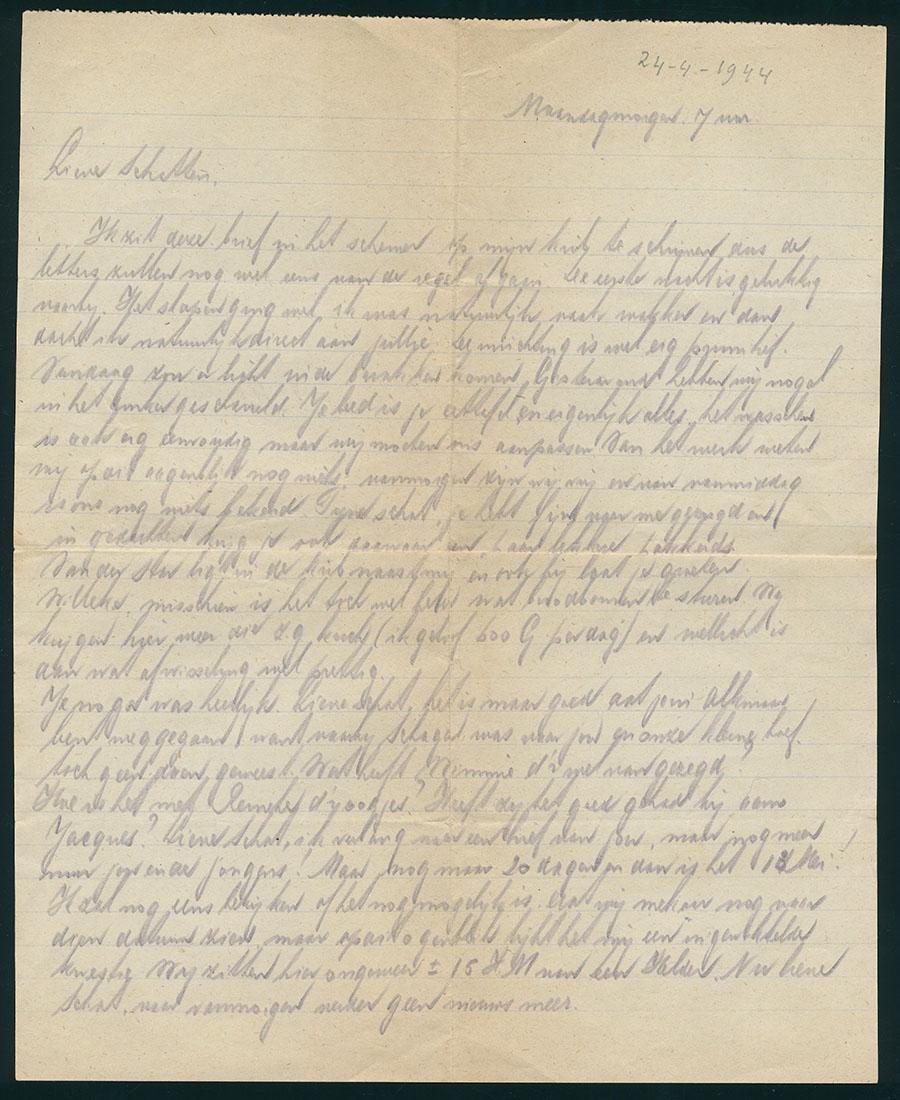 24-4-1944
Maandagmorgen. 7 uur.
Lieve Schatten,
Ik zit deze brief in het schemer op mijn krib te schrijven dus de
letters zullen nog wel eens van de regel af gaan. De eerste nacht is gelukkig
voorbij. Het slapen ging wel, ik was natuurlijk vaak wakker en dan
dacht ik natuurlijk direct aan jullie. De inrichting is wel erg primitief.
Vandaag zijn er licht in de barakken komen, Gisteravond hebben wij nogal
in het donker gescharreld. Je bed is je en eigenlijk alles, het wasschen
is ook erg eenvoudig maar wij moeten ons aanpassen Van het werk weten
wij op 't oogenblik nog niets, vanmorgen zijn wij vrij en van vanmiddag
is ons nog niets bekend. schat, je hebt fijn voor me gezorgd en
in gedachten krijg je ook daarvoor een
Van der Star ligt in de krib naast mij en ook hij laat je groeten.
misschien is het toch wel beter wat broodbonnen te sturen Wij
krijgen hier meer die z.g. kuch (ik geloof 600 G per dag) en wellicht is
dan wat afwisseling wel prettig.
was heerlijk. Lieve schat, het is maar goed dat jou Alkmaar
bent weggegaan, want voorbij Schagen was voor jou en onze kleine
toch geen doen geweest. Wat heeft Mimmie d'r wel van gezegd?
Hoe is het met d'r oogjes? Heeft zij het goed gehad bij oom
Jacques? Lieve Schat, ik verlang naar een brief van jou, maar nog meer
naar jou en de jongens! Maar, nog maar 20 dagen en dan is het 13 Mei!
Ik zal nog eens kijken of het nog mogelijk is dat wij mekaar nog voor
dien datum zien, maar op 't oogenblik lijkt het mij een ingewikkelde
kwestie. Wij zitten hier ongeveer ± 15 KM van den Helder. Nu lieve
Schat, voor vanmorgen verder geen nieuws meer.